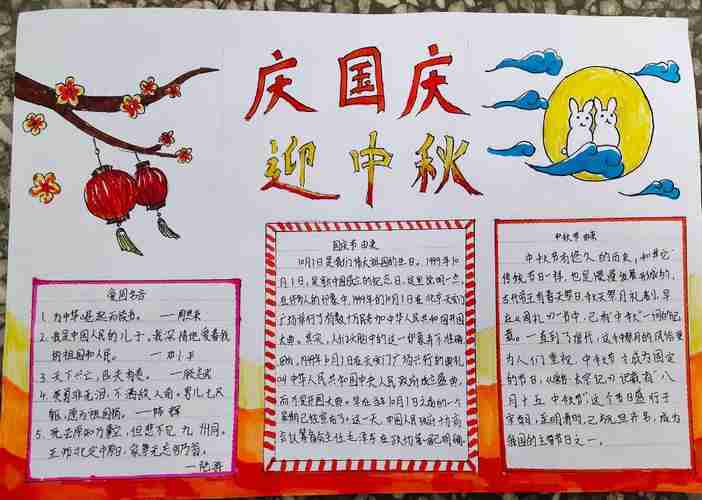 庆国庆
迎中秋
爱国名言
1. 为中华崛起而读书。 ——周恩来
2. 我是中国人民的儿子。我深情地爱着我
的祖国和人民。 ——邓小平
3. 天下兴亡，匹夫有责。
4. 男儿七尺
躯，愿为祖国捐。 ——陈辉
5. 死去原知万事空，但悲不见九州同。
王师北定中原日，家祭无忘告乃翁。
——陆游
国庆节由来
10月1日是我们伟大祖国的生日。1949年10
月1日，是新中国成立的纪念日。这里说明一点，
在许多人的印象中，1949年的10月1日在北京天安门
广场举行了有数十万军民参加中华人民共和国开国
大典。其实，人们头脑中的这一印象有不准确。
因为，1949年10月1日在天安门广场举行的典礼
叫中华人民共和国中央人民政府成立盛典，
而不是开国大典。早在当年10月1日之前的一个
星期已经宣布了。这一天，中国人民
中秋节由来
中秋节有悠久的历史，和其它
传统节日一样，也是慢慢发展形成的，
古代帝王有春天祭日，秋天祭月礼制，早
在《周礼》一书中，已有“中秋”一词的记
载。一直到了唐代，这中秋的风俗更
为人们重视，中秋节才成为固定
的节日，《唐书·太宗记》记载有“八月
十五中秋节”这个节日盛行于
宋朝，至明清时，已与元旦齐名，成为
我国的主要节日之一。